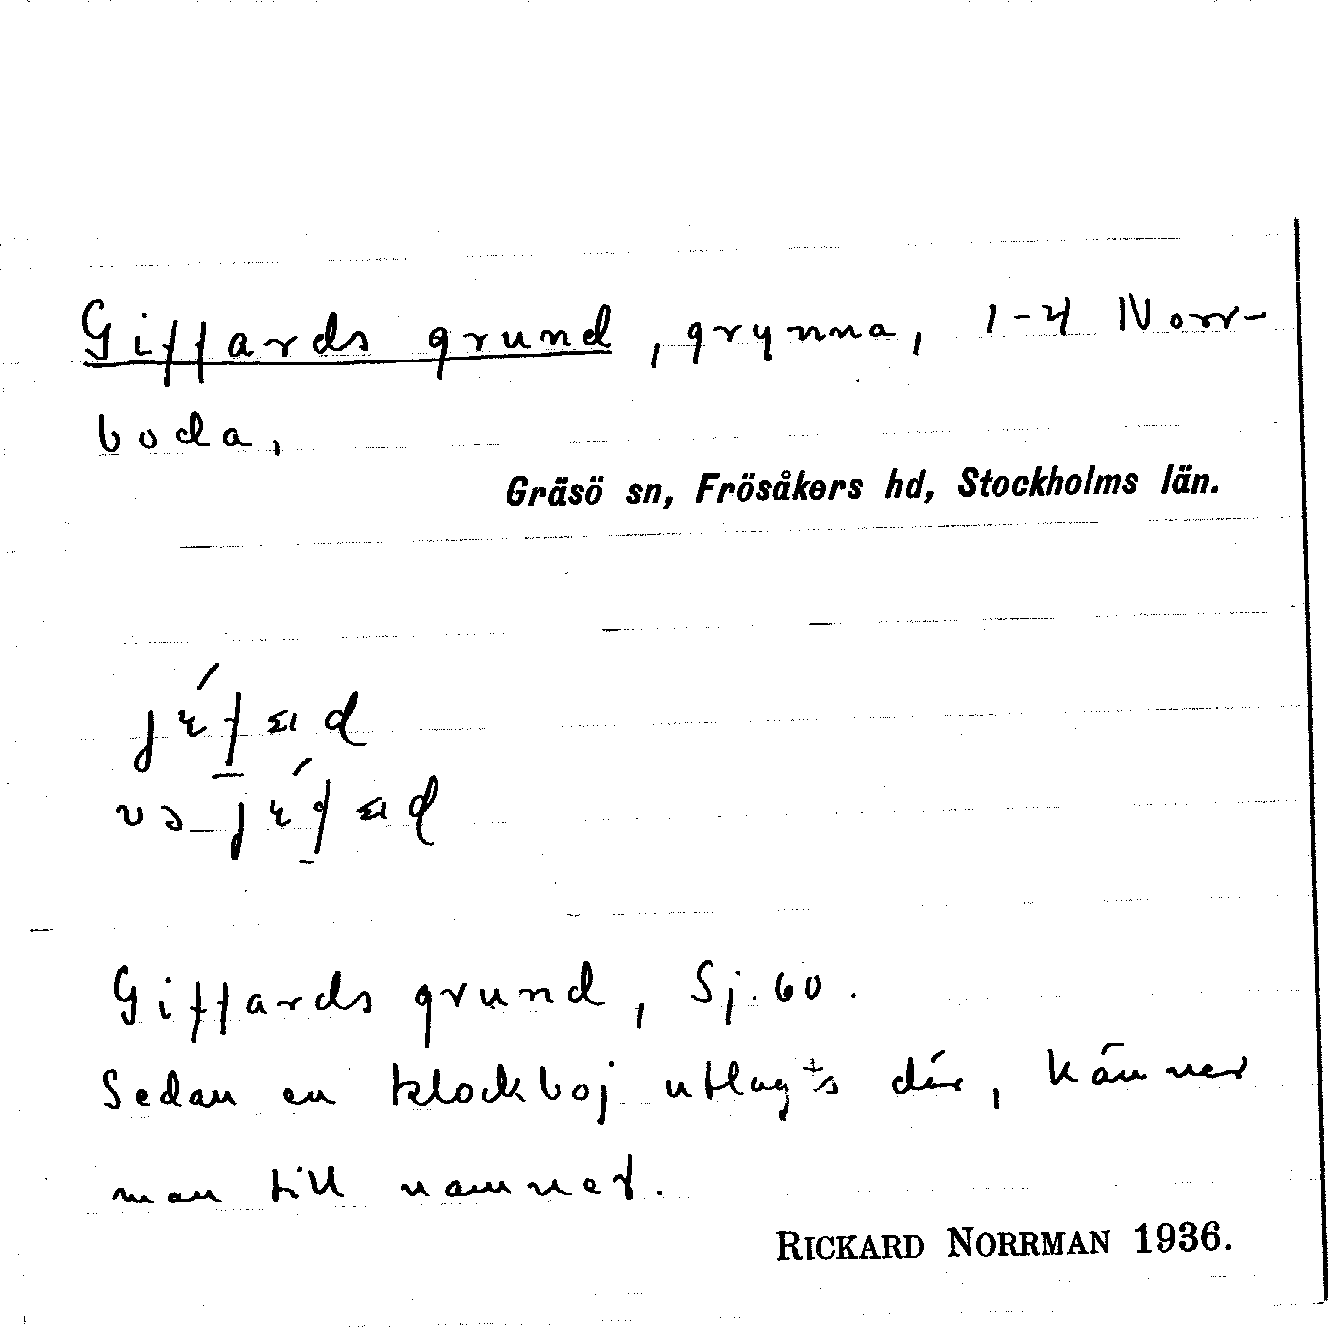 Giffards grund, grynna, 1-4 Norr-
boda,
Gräsö sn, Frösåkers hd, Stockholms län.
Giffards grund, Sj. 60.
Sedan en klockboj utlagts där, känner
man till namnet.
RICKARD NORRMAN 1936.